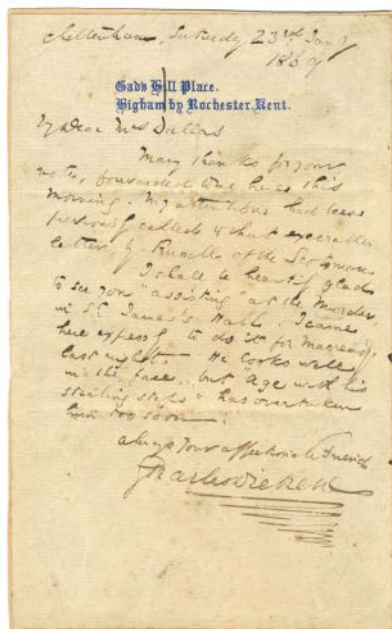 Cheltenham, Saturday 23rd Jany
1869
Gad's Hill Place.
Higham by Rochester, Kent.
My Dear Mrs Dallas
Many thanks for your
note, forwarded to me here this
morning. My attention had been
previously called to that execrable
letter of Russell's of the Scotsman
I shall be heartily glad
to see you "assisting" at the Murder,
in St. James's Hall. I came
here expressly to do it for Macready,
last night. He looks well
in the face, but "age with his
stealing steps" has overtaken
him too soon.
always your affectionate friend
Charles Dickens